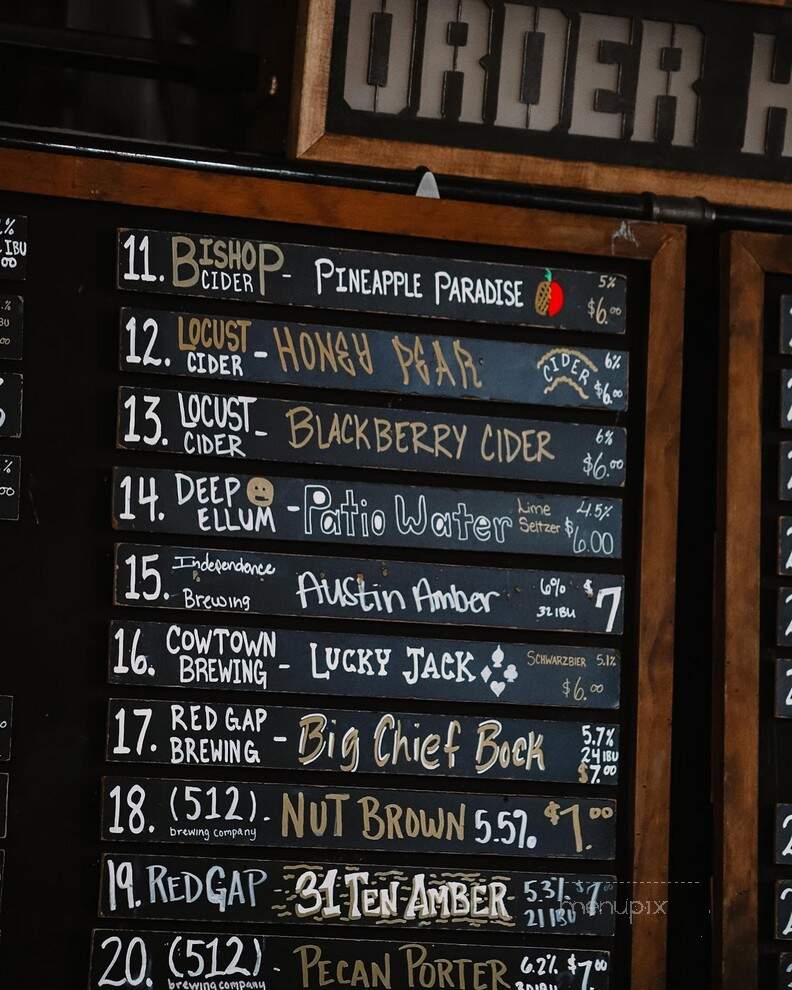 ORDER H
11. BISHOP CIDER - PINEAPPLE PARADISE 5% $6.00
12. LOCUST CIDER - HONEY PEAR CIDER 6% $6.00
13. LOCUST CIDER - BLACKBERRY CIDER 6% $6.00
14. DEEP ELLUM - Patio Water Lime Seltzer 4.5% $6.00
15. Independance Brewing Austin Amber 6% 32 IBU $7
16. COWTOWN BREWING - LUCKY JACK SCHWARZBIER 5.1% $6.00
17. RED GAP BREWING - Big Chief Bock 5.7% 24 IBU $7.00
18. (512) brewing company - NUT BROWN 5.5% $7.00
19. RED GAP - 31 TEN AMBER 5.3% $7.00 21 IBU
20. (512) brewing company - PECAN PORTER 6.2% $7.00
menupix